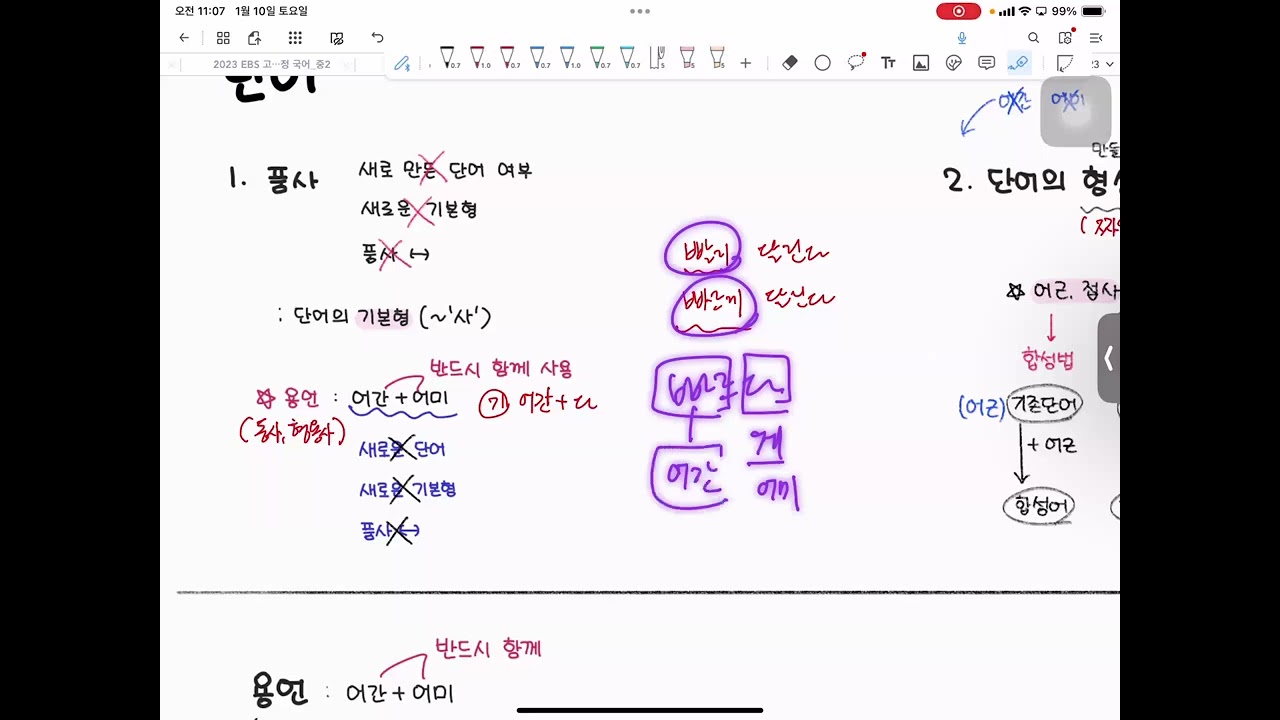 오전 11:07 1월 10일 토요일
99%
2023 EBS 고…정 국어_중2
0.7 1.0 0.7 0.7 1.0 0.7 0.7 5 5 5
Tт
단어
어간 어미
1. 품사
새로 만든 단어 여부
새로운 기본형
품사 ↔
: 단어의 기본형 (~'사')
반드시 함께 사용
☆ 용언 : 어간 + 어미
(동사, 형용사)
기 어간 + 다
새로운 단어
새로운 기본형
품사 ↔
빨리 달린다
빠르게 달린다
빠르 다
게
어간 어미
만들
2. 단어의 형성
☆ 어근, 접사
↓
합성법
(어근) 기존단어
+ 어근
합성어
반드시 함께
용언 : 어간 + 어미